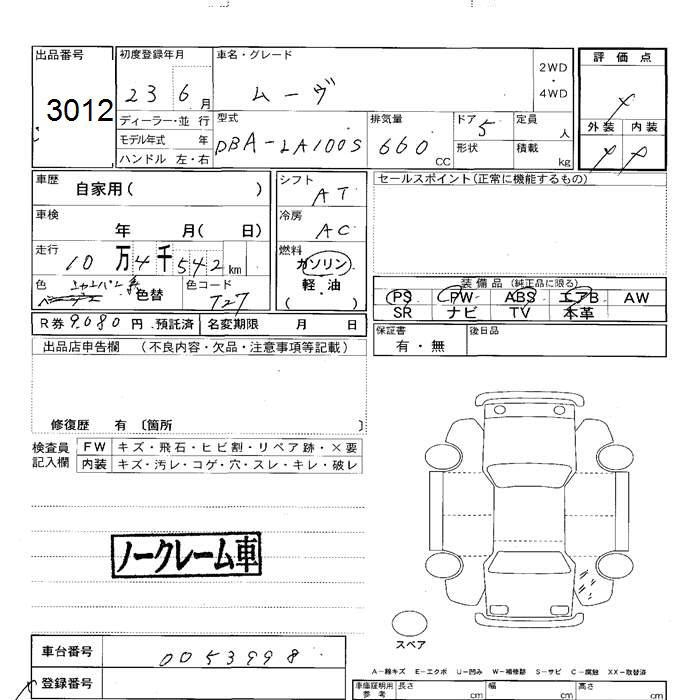 出品番号
3012
初度登録年月
23 6月
車名・グレード
ムーヴ
2WD
・
4WD
評価点
外装 内装
ディーラー・並行
モデル年式 年
ハンドル 左・右
型式
DBA-LA100S
排気量
660 CC
ドア 5
形状
定員 人
積載 kg
車歴
自家用( )
車検
年 月( 日)
走行
10万4千542km
色
シャンパン系
色替
色コード
T27
シフト
AT
冷房
AC
燃料
ガソリン
軽・油
( )
セールスポイント(正常に機能するもの)
装備品 (純正品に限る)
PS PW ABS エアB AW
SR ナビ TV 本革
R券 9,080 円 預託済 名変期限 月 日
保証書
有・無
後日品
出品店申告欄 (不良内容・欠品・注意事項等記載)
修復歴 有 〔箇所 〕
検査員
記入欄
FW キズ・飛石・ヒビ割・リペア跡・×要
内装 キズ・汚レ・コゲ・穴・スレ・キレ・破レ
ノークレーム車
スペア
車台番号
0053998
登録番号
A-線キズ E-エクボ U-凹み W-補修跡 S-サビ C-腐蝕 XX-取替済
車庫証明用
参考
長さ cm
幅 cm
高さ cm